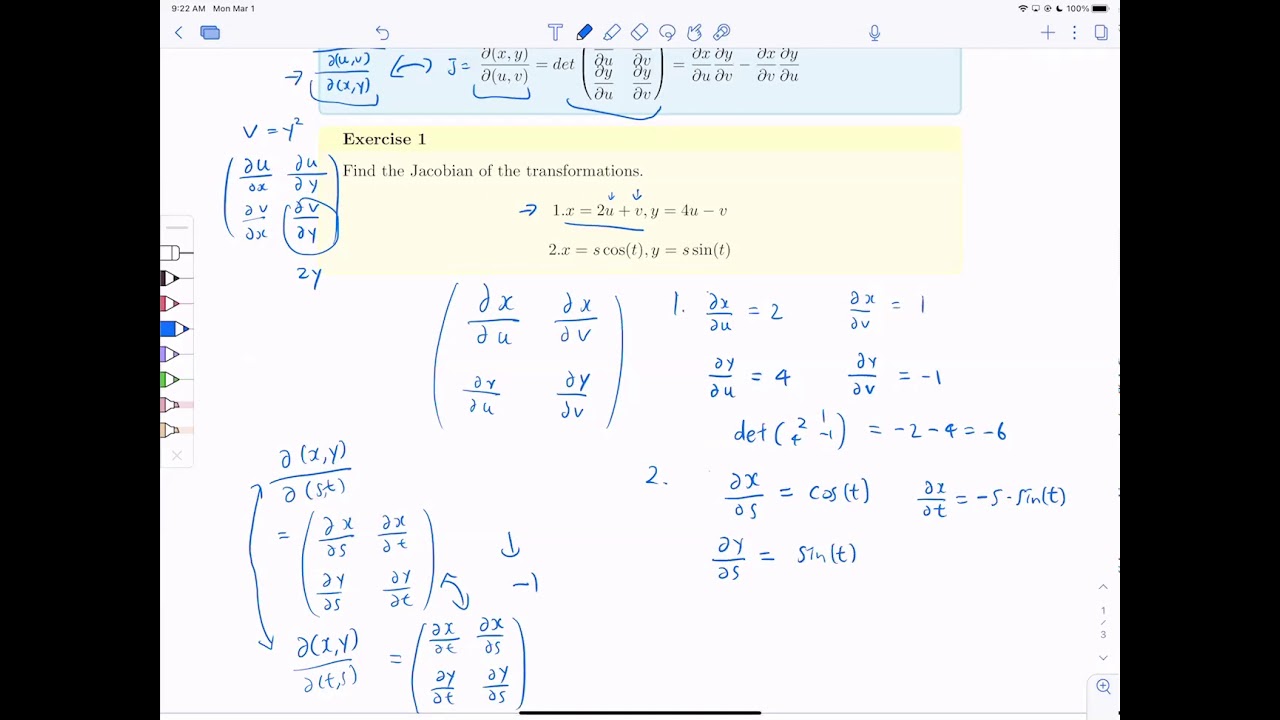 9:22 AM Mon Mar 1
100%
→ ∂(u,v)/∂(x,y) ↔ J = ∂(x, y)/∂(u, v) = det (∂u ∂v ; ∂y/∂u ∂y/∂v) = ∂x/∂u ∂y/∂v − ∂x/∂v ∂y/∂u
v = y²
(∂u/∂x ∂u/∂y ; ∂v/∂x ∂v/∂y)
2y
Exercise 1
Find the Jacobian of the transformations.
→ 1.x = 2u + v, y = 4u − v
2.x = s cos(t), y = s sin(t)
(∂x/∂u ∂x/∂v ; ∂y/∂u ∂y/∂v)
1. ∂x/∂u = 2 ∂x/∂v = 1
∂y/∂u = 4 ∂y/∂v = -1
det(2 1 ; 4 -1) = -2-4 = -6
2. ∂x/∂s = cos(t) ∂x/∂t = -s·sin(t)
∂y/∂s = sin(t)
∂(x,y)/∂(s,t)
= (∂x/∂s ∂x/∂t ; ∂y/∂s ∂y/∂t)
↓
-1
∂(x,y)/∂(t,s) = (∂x/∂t ∂x/∂s ; ∂y/∂t ∂y/∂s)
1
/
3